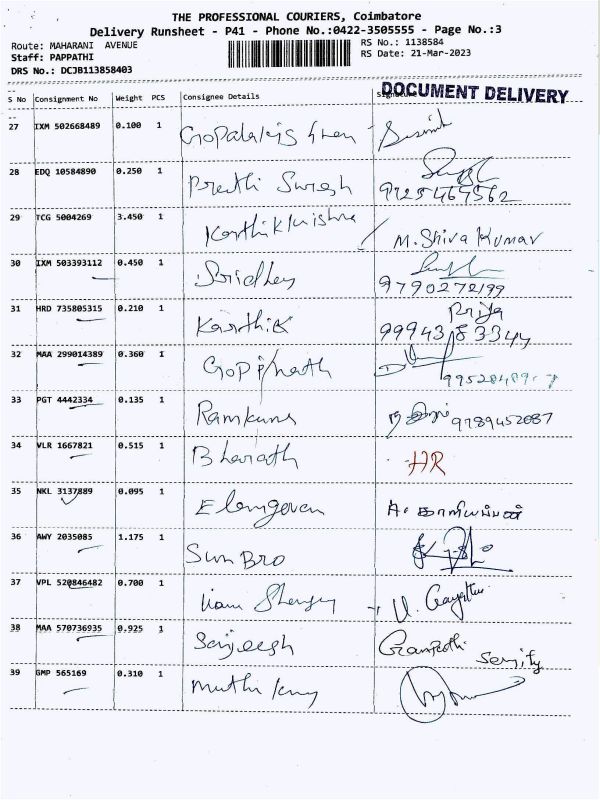 THE PROFESSIONAL COURIERS, Coimbatore
Delivery Runsheet - P41 - Phone No.:0422-3505555 - Page No.:3
Route: MAHARANI AVENUE
RS No.: 1138584
Staff: PAPPATHI
RS Date: 21-Mar-2023
DRS No.: DCJB113858403
DOCUMENT DELIVERY
S No Consignment No Weight PCS Consignee Details Signature
27 IXM 502668489 0.100 1
28 EDQ 10584890 0.250 1 Preethi Suresh
29 TCG 5004269 3.450 1 Karthik Krishna M. Shiva Kumar
30 IXM 503393112 0.450 1 Sridhey 9790272199
31 HRD 735805315 0.210 1 Karthik Priya 9994383344
32 MAA 299014389 0.360 1 Gopinath
33 PGT 4442334 0.135 1 Ramkumar 9789452087
34 VLR 1667821 0.515 1 Bharath HR
35 NKL 3137889 0.095 1 Elangovan
36 AWY 2035085 1.175 1 Sun Bro
37 VPL 520846482 0.700 1 U. Gayathri
38 MAA 570736935 0.925 1 Sanjeesh
39 GMP 565169 0.310 1